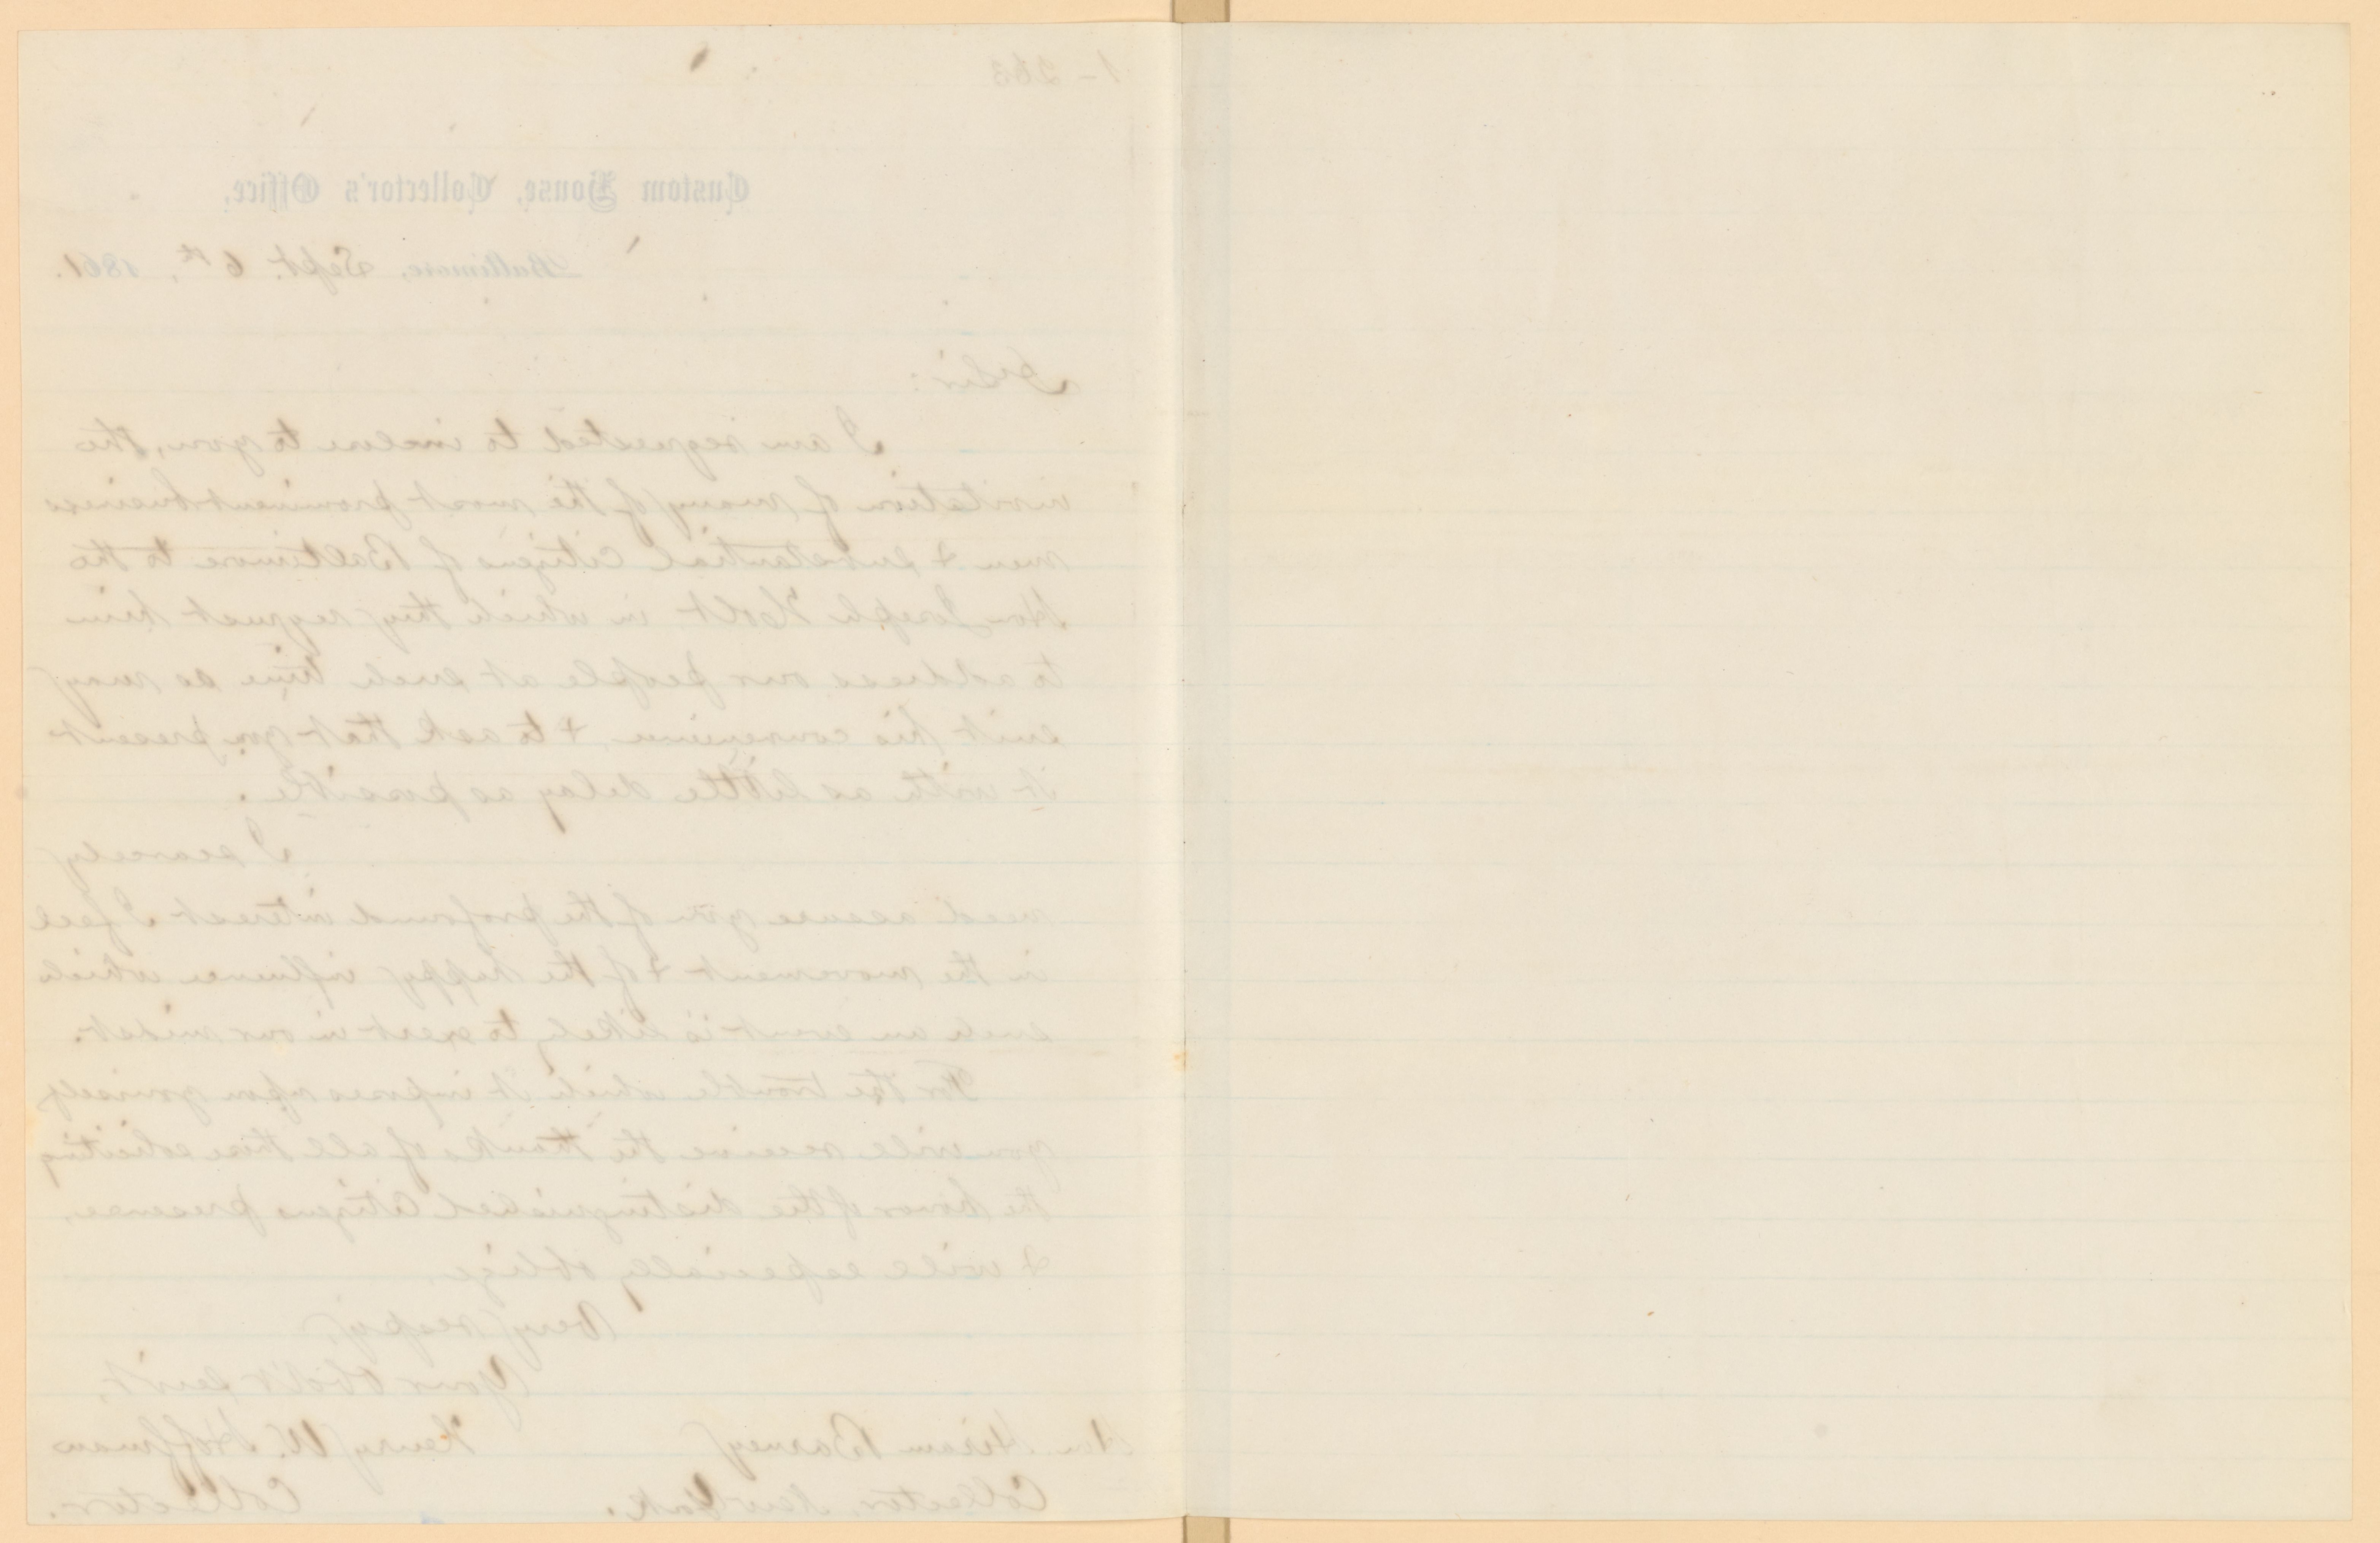 1-263
Custom House, Collector's Office,
Baltimore, Sept. 6th, 1861.
Sir:
I am requested to inclose to you, the
invitation of many of the most prominent business
men & substantial citizens of Baltimore to the
Hon Joseph Holt in which they request him
to address our people at such time as may
suit his convenience, & to ask that you present
it with as little delay as possible.
I scarcely
need assure you of the profound interest I feel
in the movement & of the happy influence which
such an event is likely to exert in our midst.
For the trouble which it imposes upon yourself
you will receive the thanks of all those soliciting
the honor of the distinguished Citizens presence,
& will especially oblige,
Very respy,
Your Obdt Servt,
Hon. Hiram Barney Henry W. Hoffman
Collector, New York. Collector.